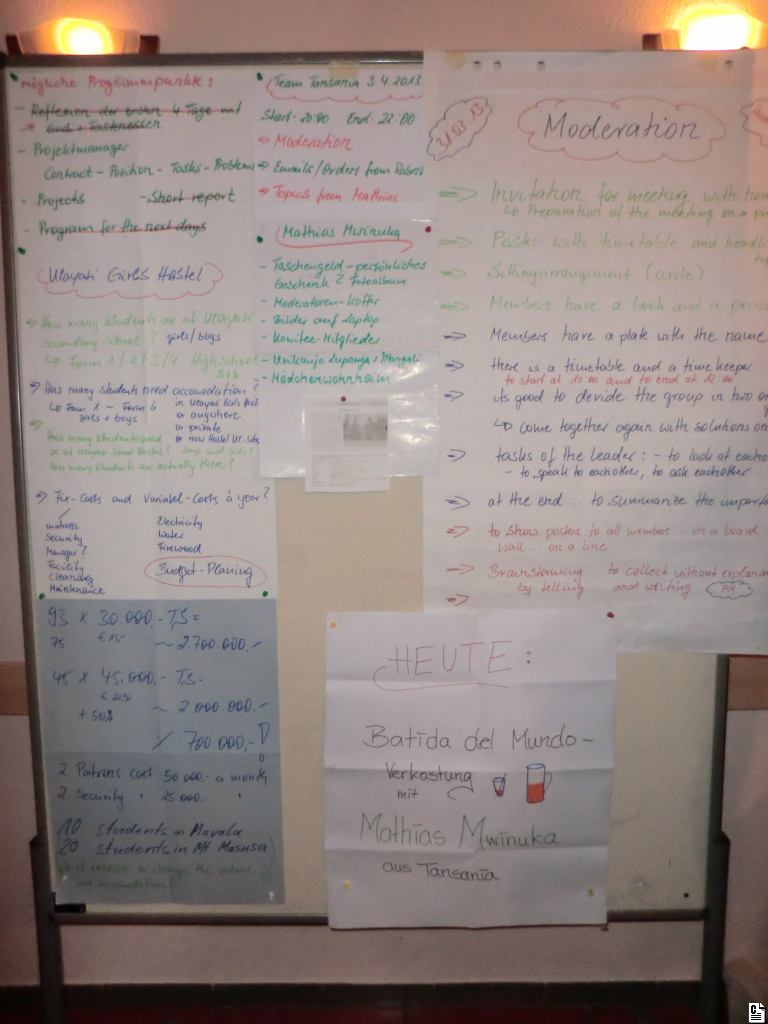 mögliche Programmpunkte:
- Reflexion der ersten 4 Tage mit
- Projektmanager
Contract - Position - Tasks - Problems
- Projects - Short report
- Program for the next days
Ulayati Girls Hostel
How many students are at Ulayati
Secondary School? girls/boys
Form 1/2/3/4 High school
5+6
How many students need accomodation?
Form 1 - Form 6
girls + boys
in Ulayati Girls
or anywhere
or private
or new Hostel
boys and Girls?
How many students are actually there?
Fix-Costs and Variabel-Costs a year?
matrons
Security
Manager?
Facility
Cleaning
Maintenance
Electricity
Water
Firewood
Budget-Planing
93 x 30.000,- T,S =
75 € 15,- ~ 2.700.000,-
45 x 45.000,- TS-
€ 22,50
+ 50% ~ 2 000.000,-
% 700.000,-
2 Patrons cost 50 000,- a month
2 Security " 25 000,- "
10 students in Mavala
20 students in Mt Masusa
Team Tansania 3.4.2013
Start: 20:00 End: 22:00
Moderation
Emails/Orders from Robert
Topics from Mathias
Mathias Mwinuka
- Taschengeld - persönliches
Geschenk? Fotoalbum
- Moderatoren-Koffer
- Bilder auf Laptop
- Komitee-Mitglieder
- Unikanjo Lupanga
- Mädchenwohnheim
31.03.13
Moderation
Invitation for meeting with
Preparation of the meeting on a
Poster with timetable and
Sittingarrangement (circle)
Members have a book and a
Members have a plate with the name
there is a timetable and a timekeeper
to start at 10:00 and to end at 12:00
its good to devide the group in two
come together again with solutions
tasks of the leader: - to look at each
- to speak to eachother, to ask eachother
at the end... to summarize the
to show posters to all members... on a board...
wall... on a line
Brainstorming... to collect without
by telling... and writing
HEUTE:
Batida del Mundo-
Verkostung
mit
Mathias Mwinuka
aus Tansania